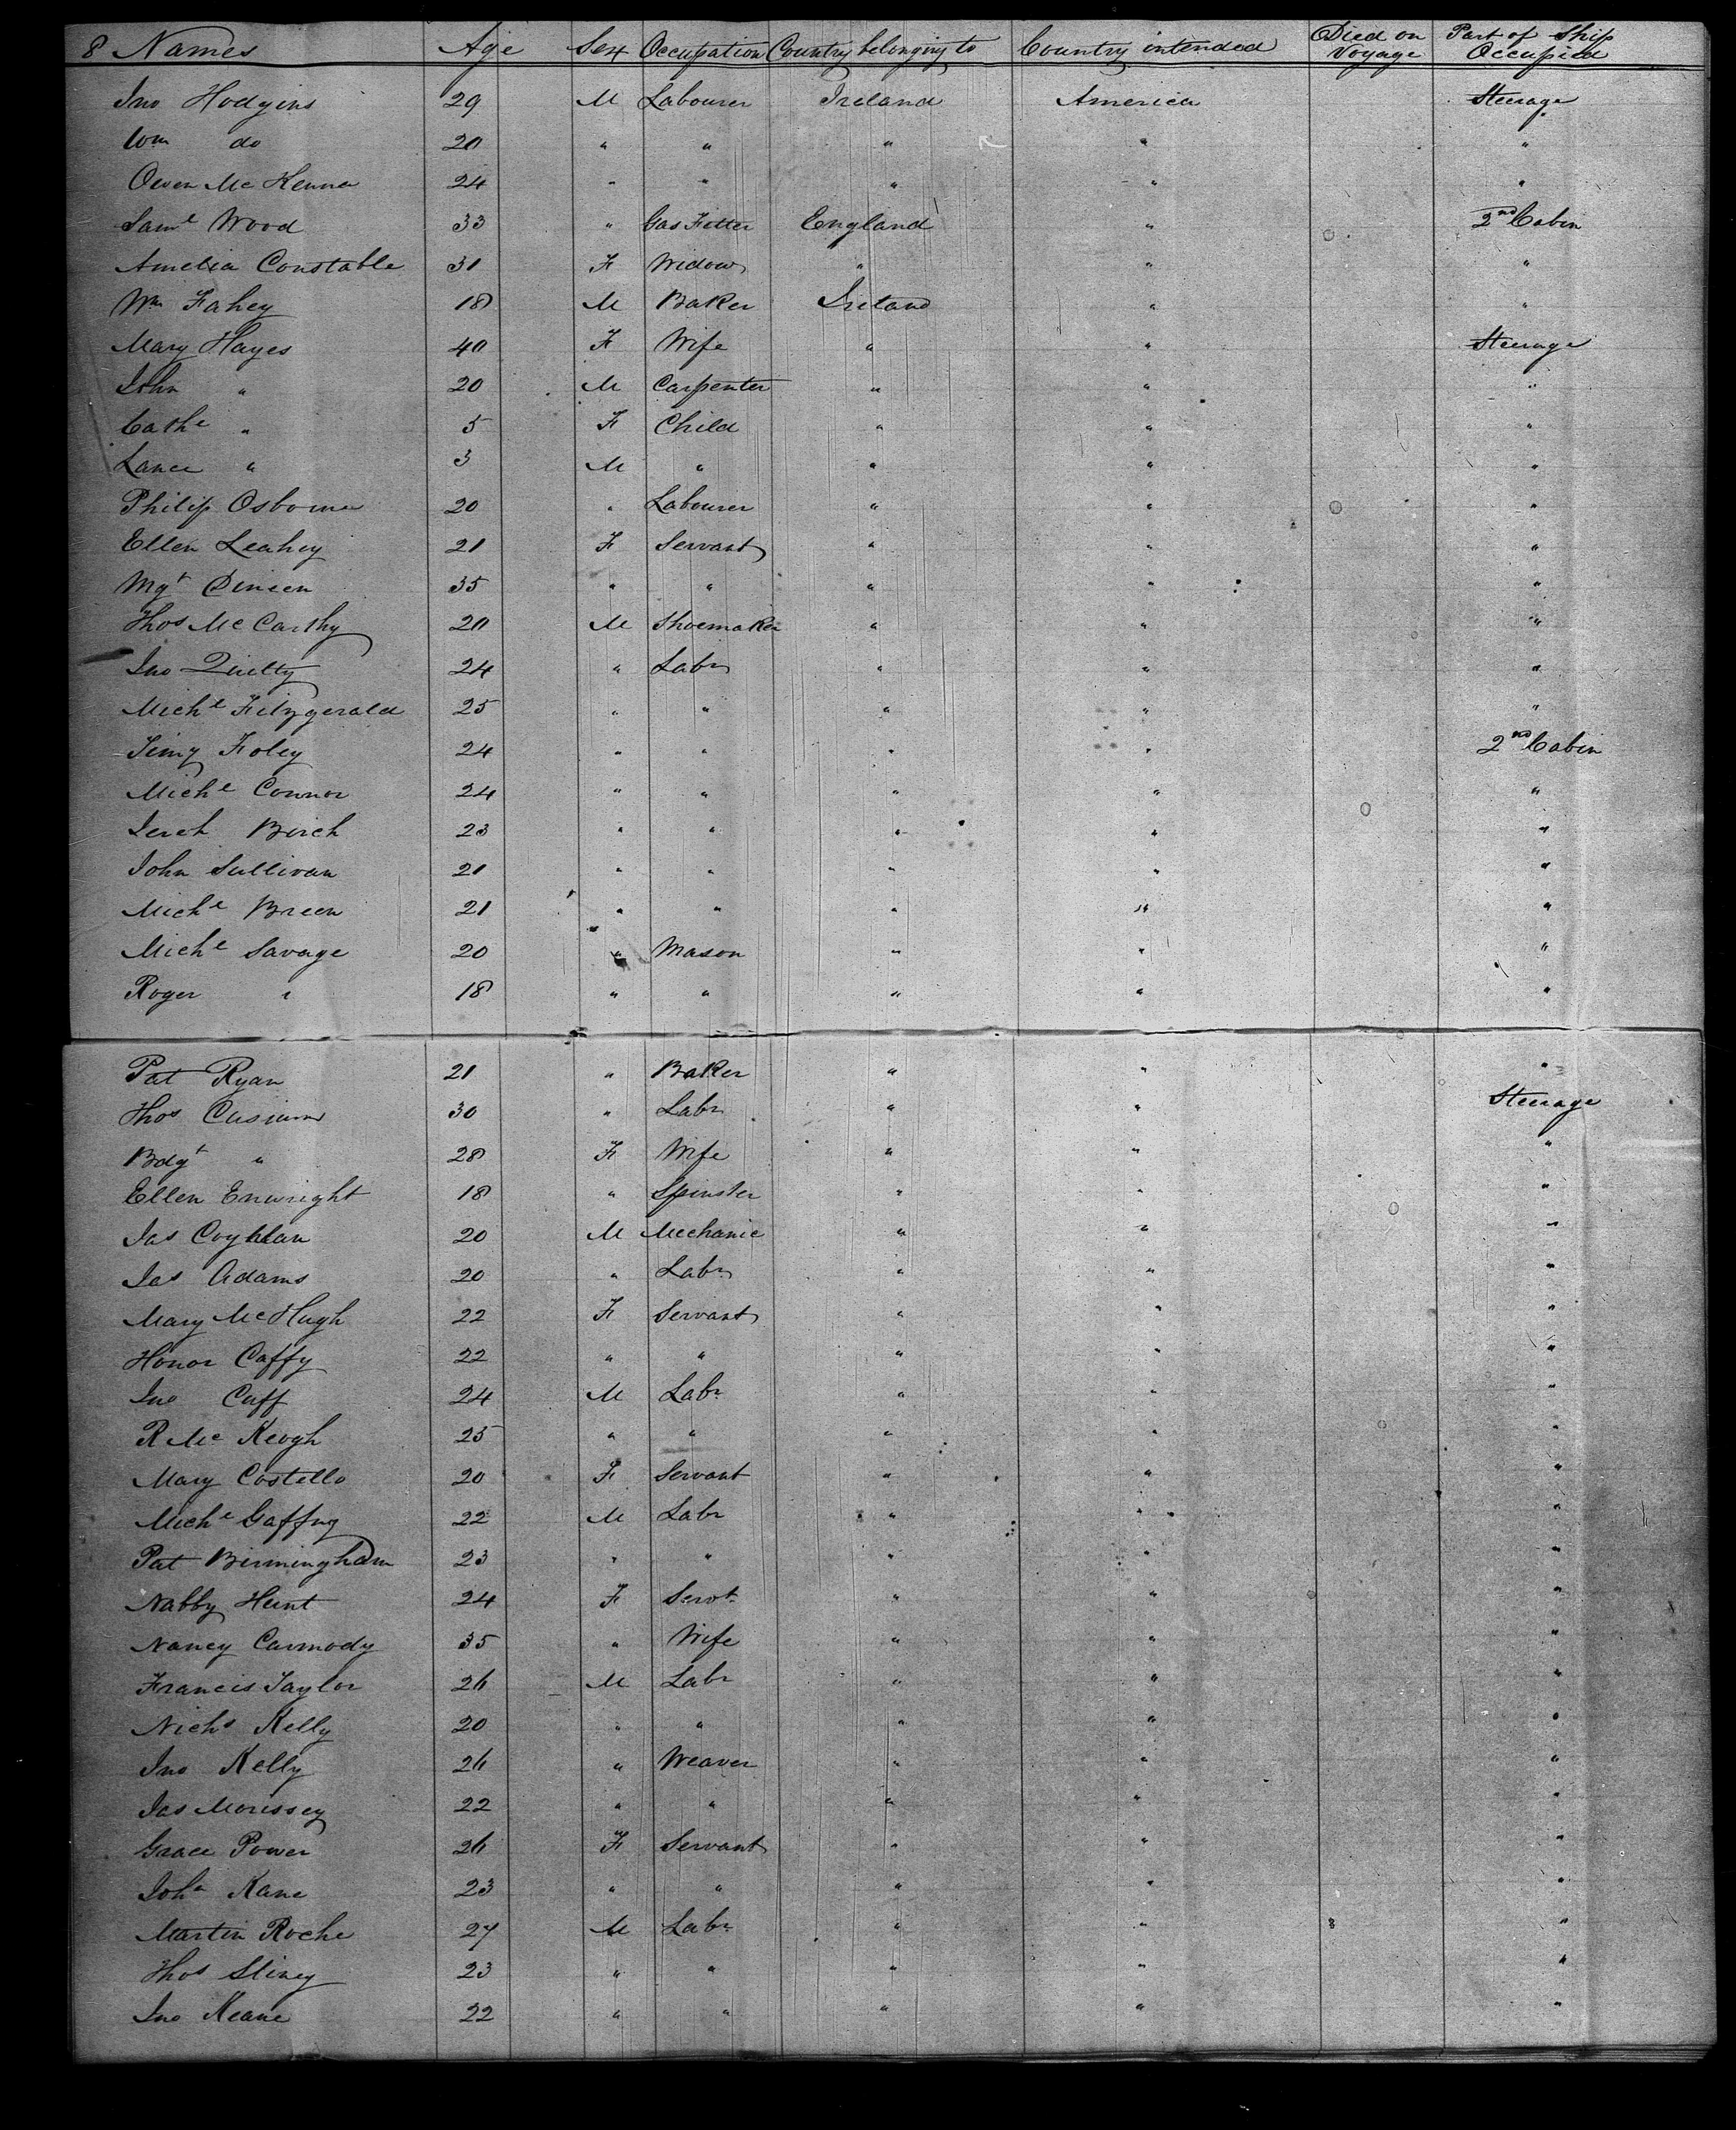 8 Names Age Sex Occupation Country belonging to Country intended Died on Voyage Part of Ship Occupied
Jno Hodgins 29 M Labourer Ireland America Steerage
Wm do 20 " " " " "
Owen McKenna 24 " " " " "
Saml Wood 33 " Gas Fitter England " 2nd Cabin
Amelia Constable 31 F Widow " " "
Wm Fahey 18 M Baker Ireland " "
Mary Hayes 40 F Wife " " Steerage
John " 20 M Carpenter " " "
Cathe " 5 F Child " " "
Lance " 3 M " " " "
Philip Osborne 20 " Labourer " " "
Ellen Leahey 21 F Servant " " "
Mgt Dineen 35 " " " " "
Thos McCarthy 20 M Shoemaker " " "
Jno Quilty 24 " Labr " " "
Michl Fitzgerald 25 " " " " "
Timy Foley 24 " " " " 2nd Cabin
Michl Connor 24 " " " " "
Jereh Birch 23 " " " " "
John Sullivan 21 " " " " "
Michl Breen 21 " " " " "
Michl Savage 20 " Mason " " "
Roger " 18 " " " " "
Pat Ryan 21 " Baker " " "
Thos 30 " Labr " " Steerage
Bdgt " 28 F Wife " " "
Ellen Enwright 18 " Spinster " " "
Jas Coghlan 20 M Mechanic " " "
Jas Adams 20 " Labr " " "
Mary McHugh 22 F Servant " " "
Honor Caffy 22 " " " " "
Jno Cuff 24 M Labr " " "
R McKeogh 25 " " " " "
Mary Costello 20 F Servant " " "
Michl Gaffny 22 M Labr " " "
Pat Birmingham 23 " " " " "
Nabby Hunt 24 F Servt " " "
Nancy Carmody 35 " Wife " " "
Francis Taylor 26 M Labr " " "
Nichs Kelly 20 " " " " "
Jno Kelly 26 " Weaver " " "
Jas Morissey 22 " " " " "
Grace Power 26 F Servant " " "
Joha Kane 23 " " " " "
Martin Roche 27 M Labr " " "
Thos Sliney 23 " " " " "
Jno Keane 22 " " " " "